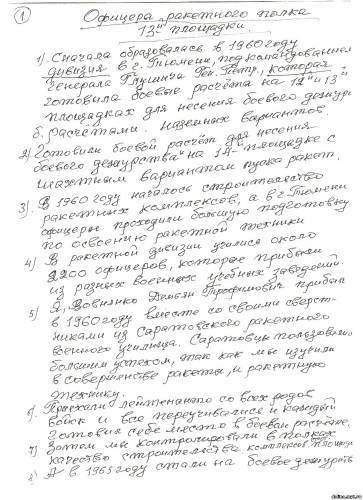 1
Офицера ракетного полка
13й площадки.
1) Сначала образовалась в 1960 году
дивизия в г. Тюмени, под командованием
генерала Глущича Ген. Петр., которая
готовила боевые расчёта на 12й и 13й
площадках для несения боевого дежур
б. расчётами. наземных вариантов.
2) Готовили боевой расчёт для несения
боевого дежурства на 14й площадке с
шахтным вариантом пуска ракет.
3) В 1960 году началось строительство
ракетных комплексов, а в г. Тюмени
офицеры проходили большую подготовку
по освоению ракетной техники
4) В ракетной дивизии учился около
2200 офицеров, которые прибыли
из разных военных учебных заведений.
5) Я, Вовнянко Демьян Трофимович прибыл
в 1960 году вместе со своими сверст-
никами из Саратовского ракетного
военного училища. Саратовцы пользовались
большим успехом, так как мы изучили
в совершенстве ракеты, и ракетную
технику.
6) Приехали лейтенанты со всех родов
войск и все переучивались и каждый
готовил себе место в боевом расчёте.
7) Затем мы контролировали в полках
качество строительства комплексов, площадок
8) А в 1965 году стали на боевое дежурств